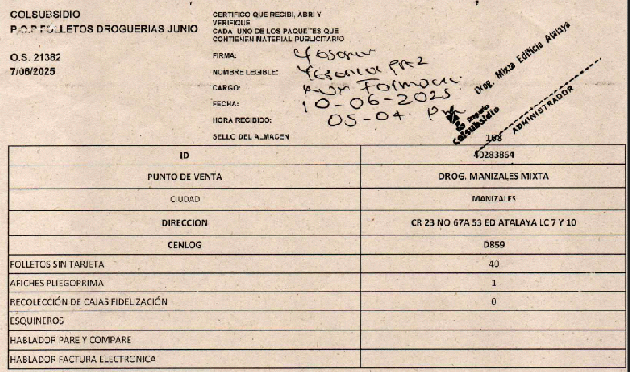 COLSUBSIDIO
P.O.P FOLLETOS DROGUERIAS JUNIO
O.S. 21382
7/06/2025
CERTIFICO QUE RECIBI, ABRI Y
VERIFIQUE
CADA UNO DE LOS PAQUETES QUE
CONTIENEN MATERIAL PUBLICITARIO
FIRMA:
NOMBRE LEGIBLE:
CARGO:
FECHA: 10-06-2025
HORA RECIBIDO: 05-04 PM
SELLO DEL ALMACEN
Drog. Mixta Edificio Atalaya
Colsubsidio
ADMINISTRADOR
ID 40283854
PUNTO DE VENTA DROG. MANIZALES MIXTA
CIUDAD MANIZALES
DIRECCION CR 23 NO 67A 53 ED ATALAYA LC 7 Y 10
CENLOG D859
FOLLETOS SIN TARJETA 40
AFICHES PLIEGOPRIMA 1
RECOLECCIÓN DE CAJAS FIDELIZACIÓN 0
ESQUINEROS
HABLADOR PARE Y COMPARE
HABLADOR FACTURA ELECTRONICA